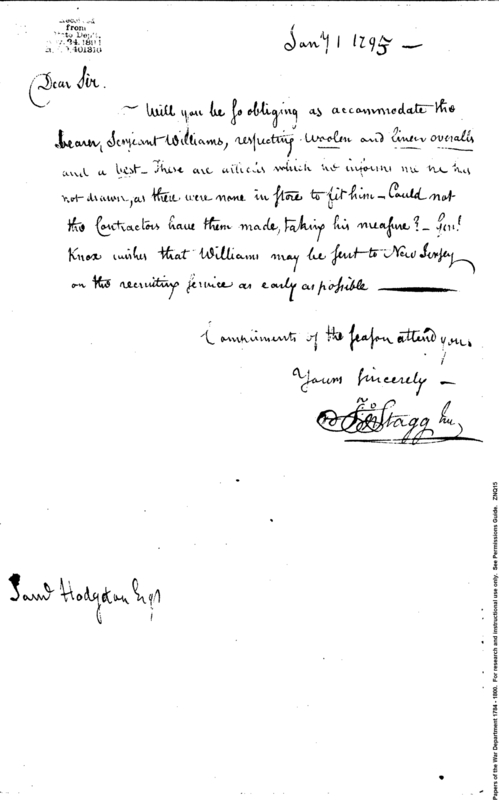 Received
from
State Dept.
24.1894
401816
Jany 1 1795 —
Dear Sir.
— Will you be so obliging as accommodate the
bearer, Serjeant Williams, respecting woolen and linen overalls
and a vest — These are articles which he informs me he has
not drawn, as there were none in store to fit him — Could not
the Contractors have them made, taking his measure? — Genl
Knox wishes that Williams may be sent to New Jersey
on the recruiting service as early as possible ———
Compliments of the season attend you.
Yours sincerely —
Jno Stagg Jnr
Saml Hodgdon Esqr
Papers of the War Department 1784 - 1800. For research and instructional use only. See Permissions Guide. ZNQ15